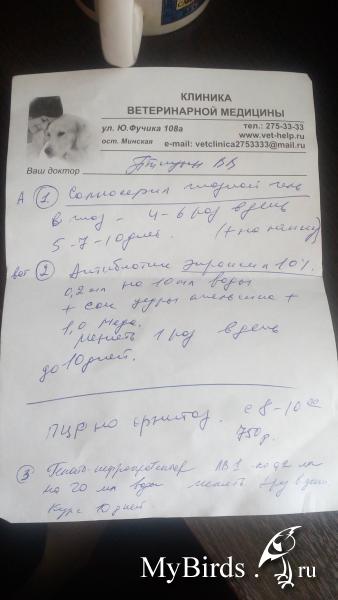 КЛИНИКА
ВЕТЕРИНАРНОЙ МЕДИЦИНЫ
ул. Ю.Фучика 108а
ост. Минская
тел.: 275-33-33
www.vet-help.ru
e-mail: vetclinica2753333@mail.ru
Ваш доктор
А ① Солкосерил глазной гель
в глаз - 4-6 раз в день
5-7-10 дней.
② Антибиотик Энроксил 10%
0,2 мл на 10 мл воды
+ сок апельсина +
1,0 меда.
менять 1 раз в день
до 10 дней.
ПЦР на орнитоз. с 8-10
750р.
③
на 20 мл воды менять в день
Курс 10 дней
MyBirds.ru